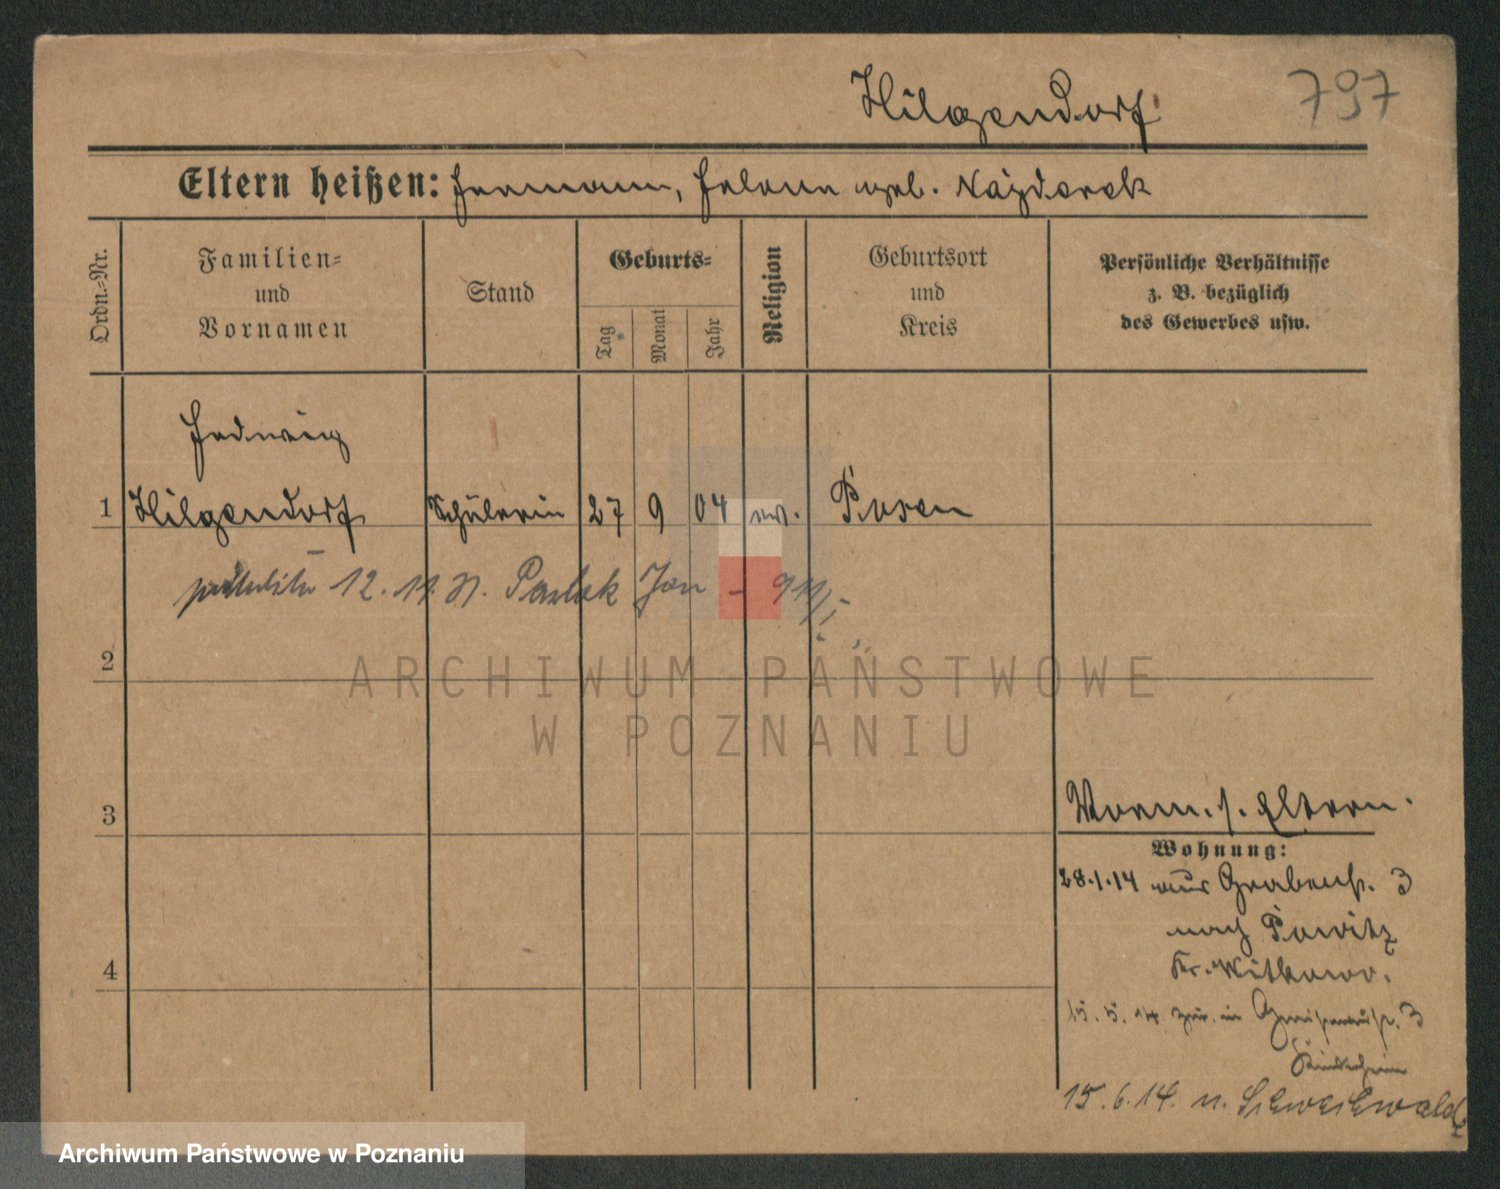 Hilgendorf
797
Eltern heißen: Hermann, Helene geb. Najderek
Ordn.-Nr.
Familien-
und
Vornamen
Stand
Geburts-
Tag
Monat
Jahr
Religion
Geburtsort
und
Kreis
Persönliche Verhältnisse
z. B. bezüglich
des Gewerbes usw.
Hedwig
1 Hilgendorf Schülerin 27 9 04 ev. Posen
12. 11. Jan -
2
ARCHIWUM PAŃSTWOWE
W POZNANIU
3
Vorm. s. Eltern.
Wohnung:
28.1.14 aus Grabenstr. 3
nach Powitz
4
Kr. Witkowo.
15. 5. 14 zur. in 3
Kinderheim
15.6.14. n.
Archiwum Państwowe w Poznaniu